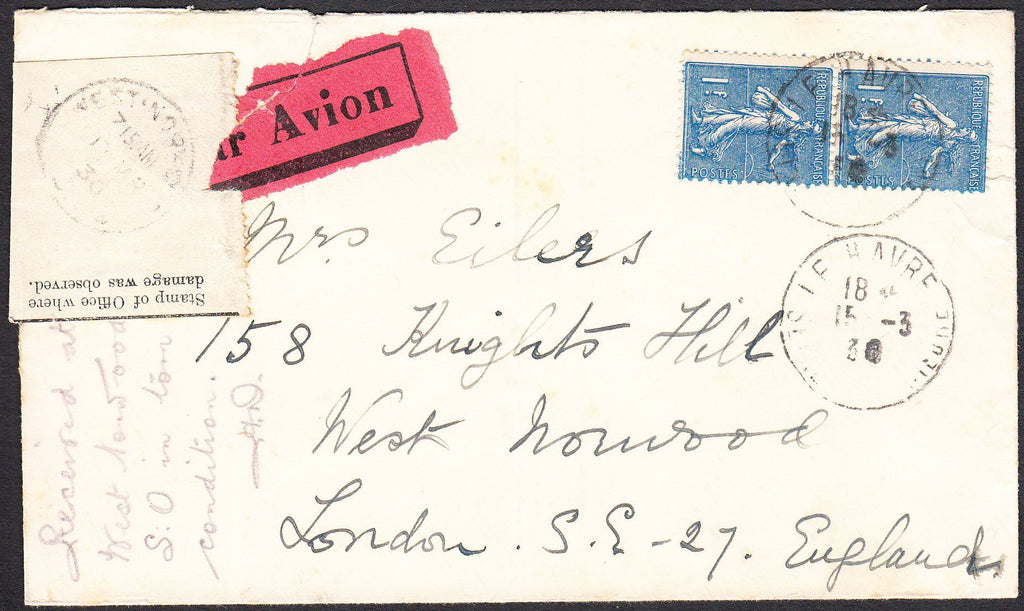 Par Avion
1F.
POSTES
REPUBLIQUE FRANÇAISE
1F.
POSTES
REPUBLIQUE FRANÇAISE
LE HAVRE
18
15 -3
30
WEST NORWOOD
715 AM
30
Stamp of Office where
damage was observed.
Mrs Eilers
158 Knights Hill
West Norwood
London . S.E-27. England.
Received at
West Norwood
S.O in torn
condition.